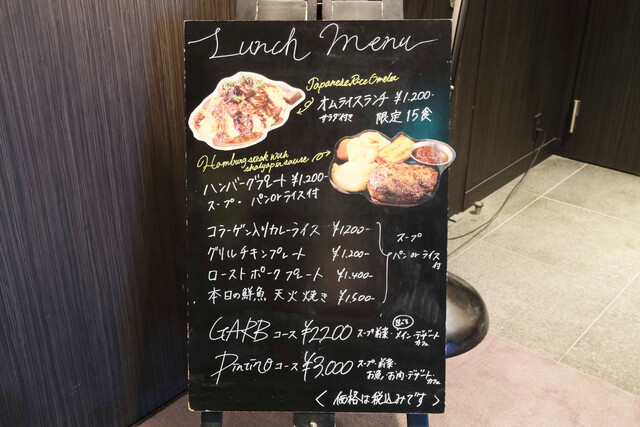 Lunch Menu
Japanese Rice Omelet
オムライスランチ ¥1,200-
サラダ付き 限定15食
Hamburg steak with
shalyapin sauce
ハンバーグプレート ¥1,200-
スープ・パンorライス付
コラーゲン入りカレーライス ¥1,200-
グリルチキンプレート ¥1,200-
ローストポークプレート ¥1,400-
本日の鮮魚 天火焼き ¥1,500-
スープ
パンorライス
付
GARBコース ¥2200 スープ・前菜・メイン・デザート
カフェ
コース ¥3,000 スープ・前菜・
お魚・お肉・デザート・
カフェ
<価格は税込みです>